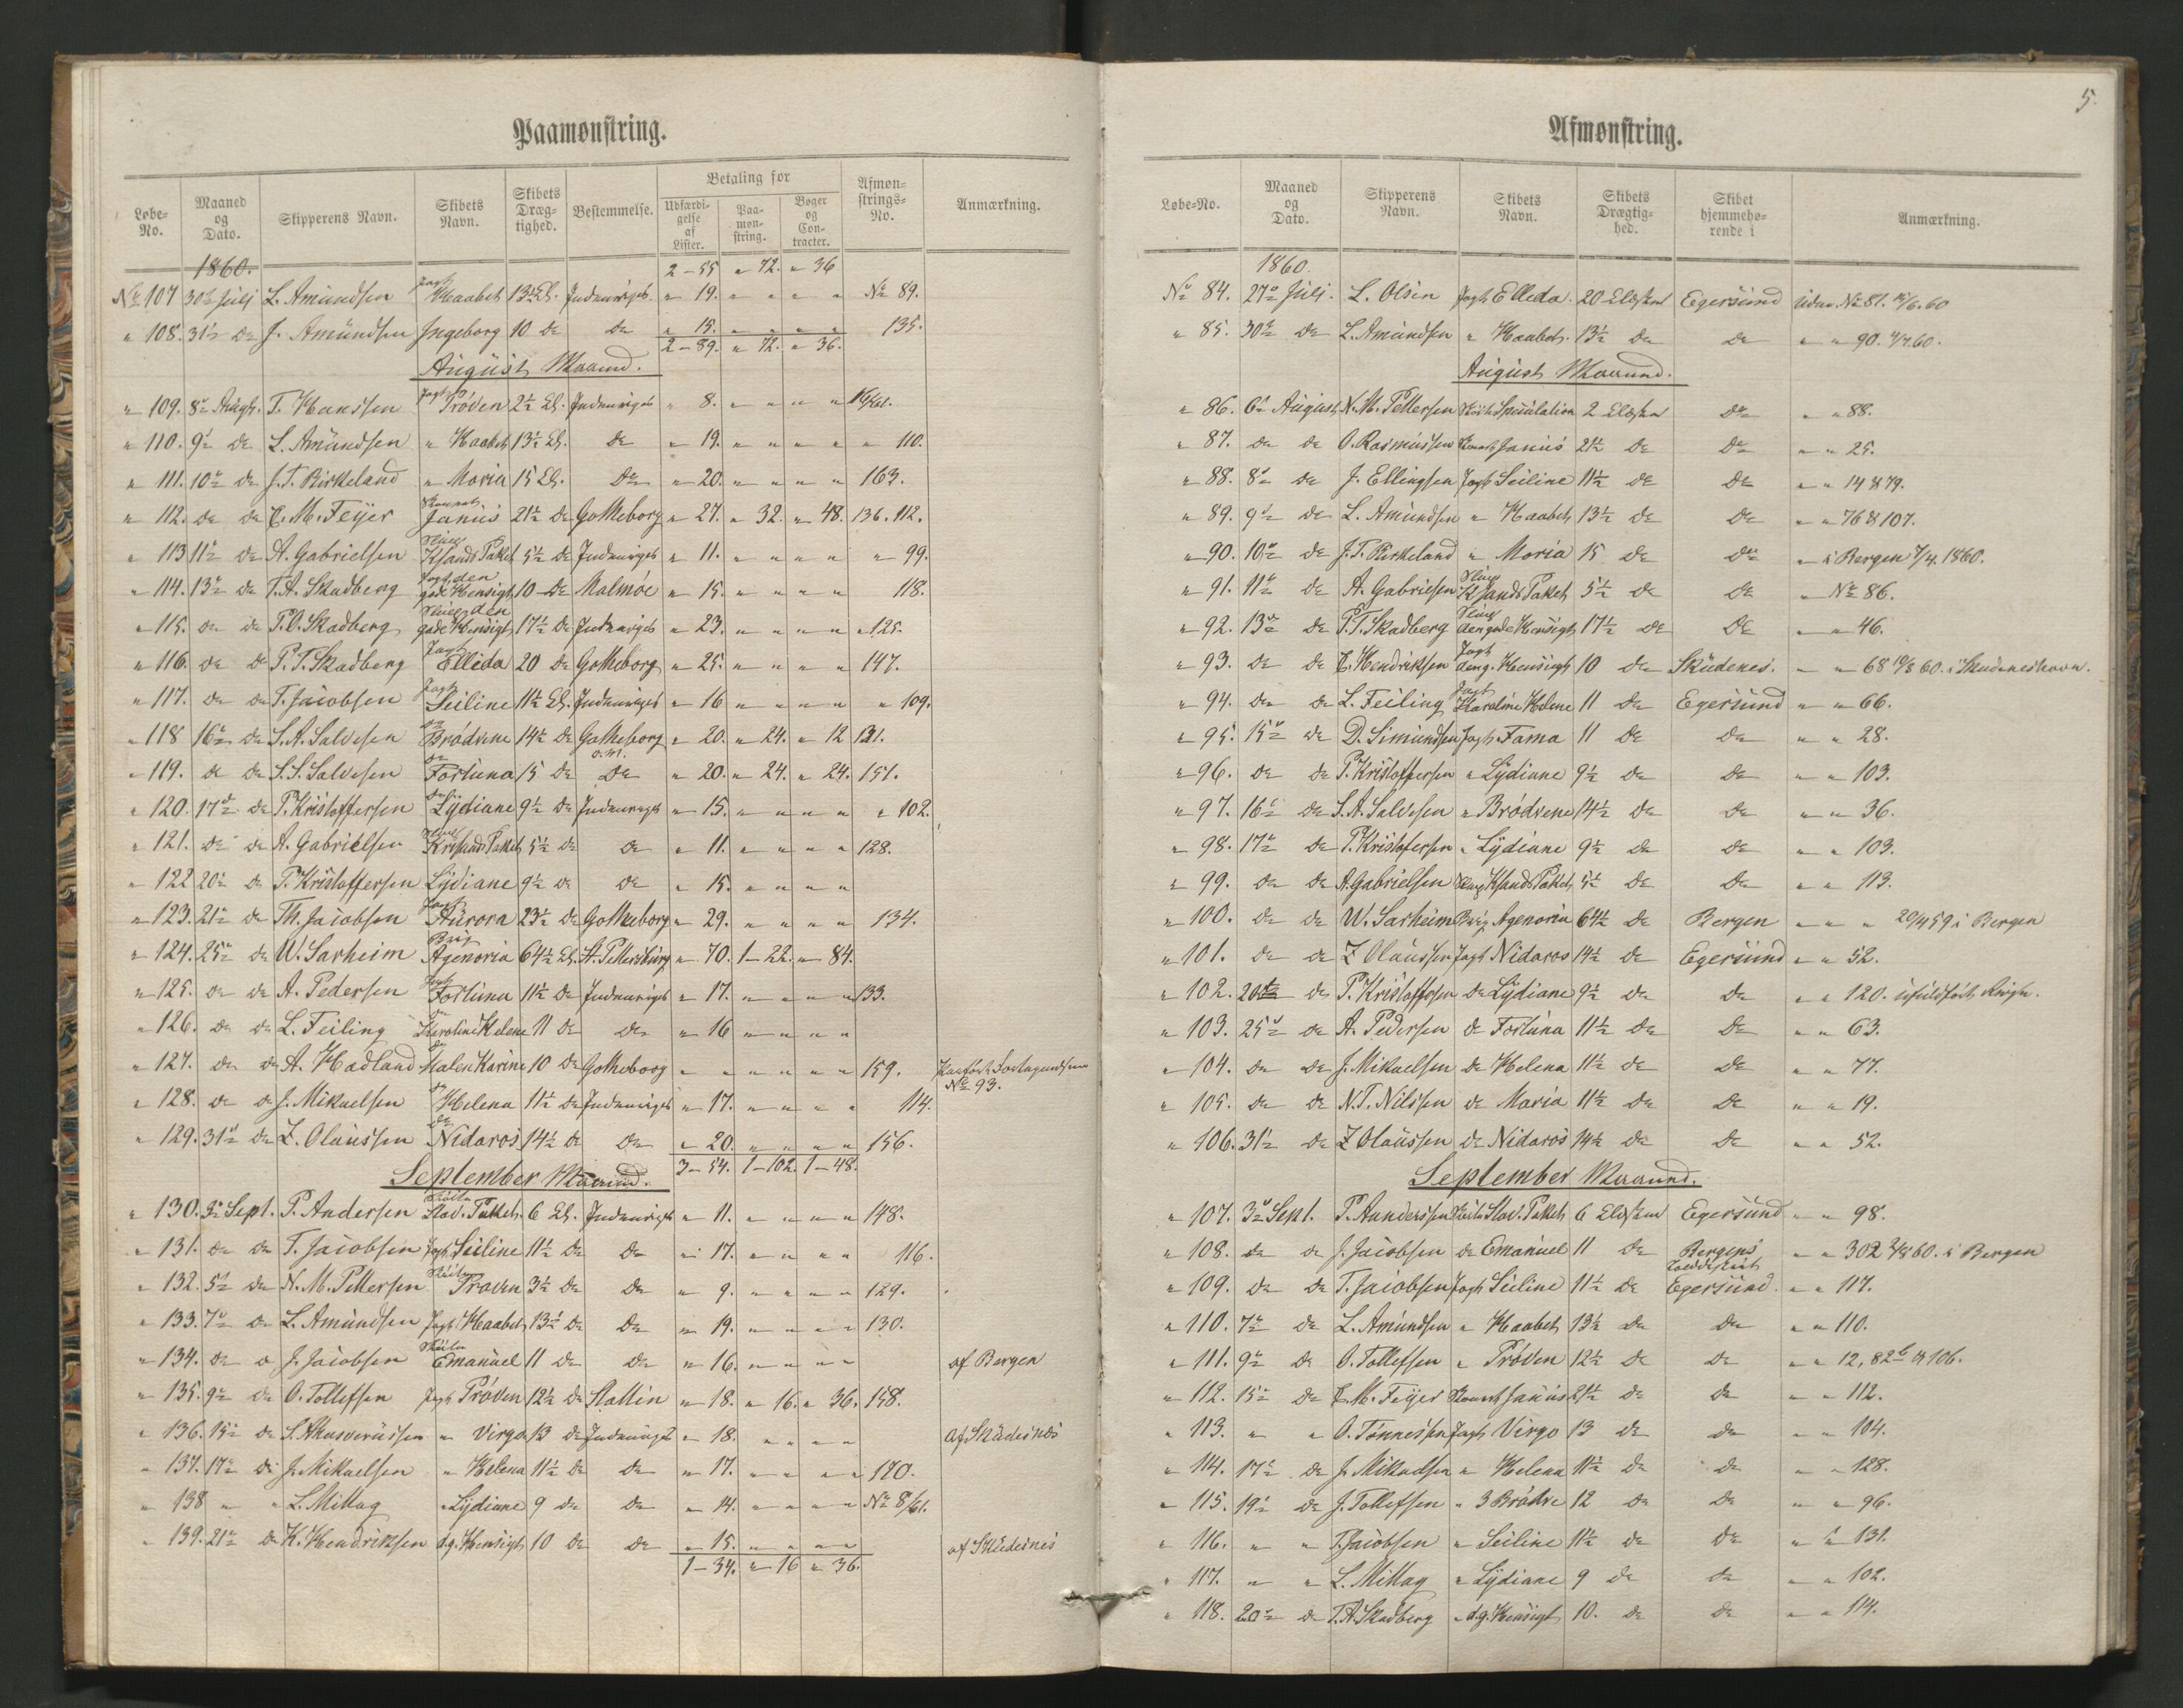 Paamønstring.
Løbe-No. Maaned og Dato. Skipperens Navn. Skibets Navn. Skibets Dræg-tighed. Bestemmelse. Betaling for Udfærdi-gelse af Lister. Paa-mon-string. Bøger og Con-tracter. Afmøn-strings-No. Anmærkning.
1860. 2-55 " 72. " 36
No 107 30te Juli L. Amundsen Jagt Haabet 13½ Cl. Indenrigs " 19. " " " " No 89.
" 108. 31te do J. Amundsen Ingeborg 10 do do " 15. " " " " 135.
2-89. " 72. " 36.
August Maaned.
" 109. 8de Augt. T. Hanssen Jagt Pröven 2½ Cl. Indenrigs " 8. " " " " 19/61.
" 110. 9de do L. Amundsen " Haabet 13½ Cl. do " 19. " " " " " 110.
" 111. 10de do J. T. Birkeland " Moria 15 Cl. do " 20. " " " " 163.
" 112. do do E. M. Feyer Skonnert Janus 21½ do Gotheborg " 27. " 32. " 48. 136. 112.
" 113 11te do A. Gabrielsen Slup Ksands Paket 5½ do Indenrigs " 11. " " " " " 99.
" 114. 13de do T. A. Skadberg Jagt den gode Hensigt 10 do Malmöe " 15. " " " " 118.
" 115. do do P. O. Skadberg Slup den gode Hensigt 17½ do Indenrigs " 23. " " " " " 125.
" 116. do do P. T. Skadberg Jagt Ellida 20 do Gotheborg " 25. " " " " 147.
" 117. do do T. Jacobsen Jagt Seiline 11½ Cl. Indenrigs " 16 " " " " " 109.
" 118 16de do S. A. Salvesen do Brödrene 14½ do Gotheborg " 20. " 24. " 12 121.
" 119. do do S. S. Salvesen do Fortuna 15 do do " 20. " 24. " 24. 151.
" 120. 17de do P. Kristoffersen do Lydiane 9½ do Indenrigs " 15. " " " " " 102.
" 121. do do A. Gabrielsen Slup Krisands Paket 5½ do do " 11. " " " " 128.
" 122 20de do P. Kristoffersen Lydiane 9½ do do " 15. " " " "
" 123. 21de do Th. Jacobsen Jagt Aurora 23½ do Gotheborg " 29. " " " " 134.
" 124. 25de do W. Sarheim Brig Agenoria 64½ Cl. St. Petersburg " 70. 1-22. " 84.
" 125. do do A. Pedersen Jagt Fortuna 11½ do Indenrigs " 17. " " " " 133.
" 126. do do L. Feiling do Karoline Helene 11 do do " 16 " " " "
" 127. do do A. Hadland do Malen Karine 10 do Gotheborg " " " " " " 159.
No 93.
" 128. do do J. Mikaelsen do Helena 11½ do Indenrigs " 17. " " " " 114.
" 129. 31te do Z. Olaussen do Nidaros 14½ do do " 20. " " " " 156.
3-54. 1-102. 1-48.
September Maaned.
" 130. 3de Sept. P. Andersen Skøite Stav. Paket. 6 Cl. Indenrigs " 11. " " " " 148.
" 131. do do T. Jacobsen Jagt Seiline 11½ do do " 17. " " " " 116.
" 132. 5te do N. M. Pettersen Skøite Proven 3½ do do " 9. " " " " 129.
" 133. 7de do L. Amundsen Jagt Haabet 13½ do do " 19. " " " " 130.
" 134. do do J. Jacobsen Skøite Emanuel 11 do do " 16. " " " " af Bergen
" 135. 9de do O. Tollefsen Jagt Pröven 12½ do Stettin " 18. " 16. " 36. 158.
" 136. 15de do S. Aasverussen " Virgo 13 do Indenrigs " 18. " " " " af Skudesnes
" 137. 17de do J. Mikaelsen " Helena 11½ do do " 17. " " " " 120.
" 138 " " L. Mittag " Lydiane 9 do do " 14. " " " " No 8/61.
" 139. 21de do K. Hendriksen d. g. Hensigt 10 do do " 15. " " " " af Skudesnes
1-34. " 16 " 36.
5.
Afmønstring.
Løbe-No. Maaned og Dato. Skipperens Navn. Skibets Navn. Skibets Drægtig-hed. Skibet hjemmehø-rende i Anmærkning.
1860.
No 84. 27de Juli. L. Olsen Jagt Elleda 20 Clæster Egersund Uden. No 81. 14/6.60
" 85. 30te do L. Amundsen " Haabet. 13½ do do " " 90. 4/7 60.
August Maaned.
" 86. 6te August N. M. Pettersen Skøite Speculation 2 Clæster do " " 88.
" 87. do do O. Rasmussen Skonnert Janus 21½ do do " " 25.
" 88. 8de do J. Ellingsen Jagt Seiline 11½ do do " " 14 & 79.
" 89. 9de do L. Amundsen " Haabet 13½ do do " " 76 & 107.
" 90. 10de do J. T. Birkeland " Moria 15 do do " i Bergen 7/4. 1860.
" 91. 11te do A. Gabrielsen Slup Ksands Paket 5½ do do " No 86.
" 92. 13de do P. T. Skadberg Slup den gode Hensigt 17½ do do " " 46.
" 93. do do E. Hendriksen Jagt den g. Hensigt 10 do Skudenes. " " 68 10/8 60. i Skudeneshavn.
" 94. do do L. Feiling Jagt Karoline Helene 11 do Egersund " " 66.
" 95. 15de do D. Simundsen Jagt Fama 11 do do " " 28.
" 96. do do P. Kristoffersen " Lydiane 9½ do do " " 103.
" 97. 16de do S. A. Salvesen " Brödrene 14½ do do " " 36.
" 98. 17de do P. Kristofersen " Lydiane 9½ do do " " 103.
" 99. do do A. Gabrielsen Slup Ksands Paket 5½ do do " " 113.
" 100. do do W. Sarheim Brig Agenoria 64½ do Bergen " " " 20/4 59 i Bergen
" 101. do do Z Olaussen Jagt Nidaros 14½ do Egersund " " 52.
" 102. 20de do P. Kristoffersen do Lydiane 9½ do do " " 120.
" 103. 25de do A. Pedersen do Fortuna 11½ do do " " 63.
" 104. do do J. Mikaelsen do Helena 11½ do do " " 77.
" 105. do do N. T. Nilssen do Maria 11½ do do " " 19.
" 106. 31te do Z Olaussen do Nidaros 14½ do do " " 52.
September Maaned.
" 107. 3de Sept. P. Aanderssen Skøite Stav. Paket 6 Clæster Egersund " " 98.
" 108. do do J. Jacobsen do Emanuel 11 do Bergens Tolddistrict " " 302 60. i Bergen
" 109. do do T. Jacobsen Jagt Seiline 11½ do Egersund " " 117.
" 110. 7de do L. Amundsen " Haabet 13½ do do " " 110.
" 111. 9de do O. Tollefsen " Pröven 12½ do do " " 12, 82 & 106.
" 112. 15de do E. M. Feyer Skonnert Janus 21½ do do " " 112.
" 113. " " O. Tönnessen Jagt Virgo 13 do do " " 104.
" 114. 17de do J. Mikaelsen " Helena 11½ do do " " 128.
" 115. 19de do J. Tollefsen " 3 Brödre 12 do do " " 96.
" 116. " " T. Jacobsen " Seiline 11½ do do " " 131.
" 117. " " L. Mittag " Lydiane 9 do do " " 102.
" 118. 20de do T. A. Skadberg " d. g. Hensigt 10. do do " " 114.